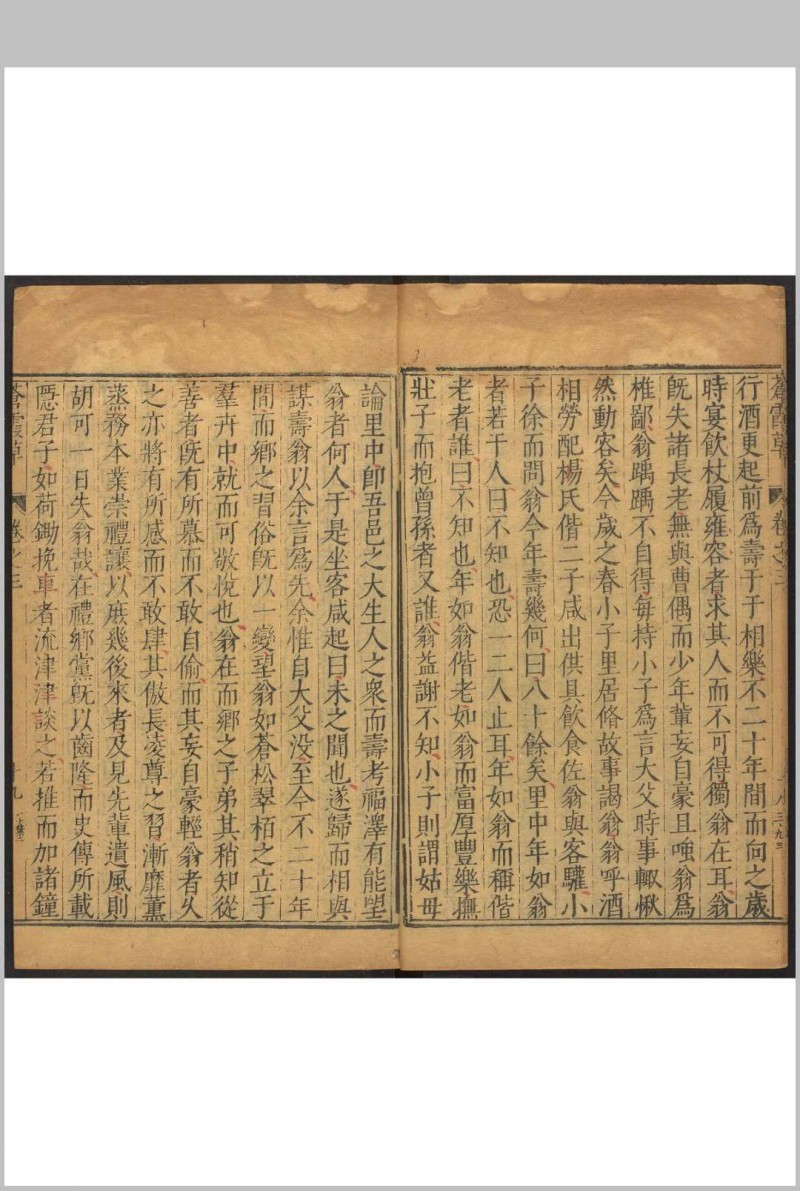 蒼霞草
卷之三
行酒更起前爲壽于于相樂不二十年間而向之歲
時宴飲杖履雍容者求其人而不可得獨翁在耳翁
旣失諸長老無與曹偶而少年輩妄自豪且嗤翁爲
椎鄙翁踽踽不自得每持小子爲言大父時事輙愀
然動容矣今歲之春小子里居脩故事謁翁翁呼酒
相勞配楊氏偕二子咸出供具飲食佐翁與客驩小
子徐而問翁今年壽幾何曰八十餘矣里中年如翁
者若干人曰不知也恐一二人止耳年如翁而稱偕
老者誰曰不知也年如翁偕老如翁而富厚豐樂撫
壯子而抱曾孫者又誰翁益謝不知小子則謂姑毋
論里中卽吾邑之大生人之衆而壽考福澤有能望
翁者何人于是坐客咸起曰未之聞也遂歸而相與
謀壽翁以余言爲先余惟自大父没至今不二十年
間而鄉之習俗旣以一變望翁如蒼松翠栢之立于
羣卉中就而可敬悅也翁在而鄉之子弟其稍知從
善者旣有所慕而不敢自偷而其妄自豪輕翁者乆
之亦將有所感而不敢肆其傲長凌尊之習漸靡薰
蒸務本業崇禮讓以庶幾後來者及見先輩遺風則
胡可一日失翁哉在禮鄉黨旣以齒隆而史傳所載
隱君子如荷鋤挽車者流津津談之若推而加諸鐘
蒼霞草
卷之三
十九